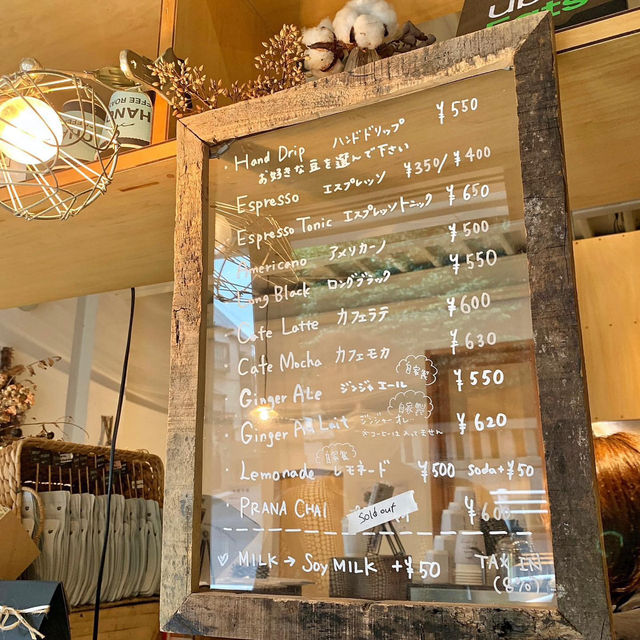 HAND
COFFEE ROA
Eats
Hand Drip ハンドドリップ ¥550
お好きな豆を選んで下さい
Espresso エスプレッソ ¥350/¥400
Espresso Tonic エスプレッソトニック ¥650
Americano アメリカーノ ¥500
Long Black ロングブラック ¥550
Cafe Latte カフェラテ ¥600
Cafe Mocha カフェモカ ¥630
自家製
Ginger Ale ジンジャエール ¥550
自家製
Ginger Au Lait ジンジャーオレ ¥620
※コーヒーは入ってません
自家製
Lemonade レモネード ¥500 Soda+¥50
PRANA CHAI Sold out ¥600
♡ MILK → Soy MILK +¥50 TAX IN
(8%)